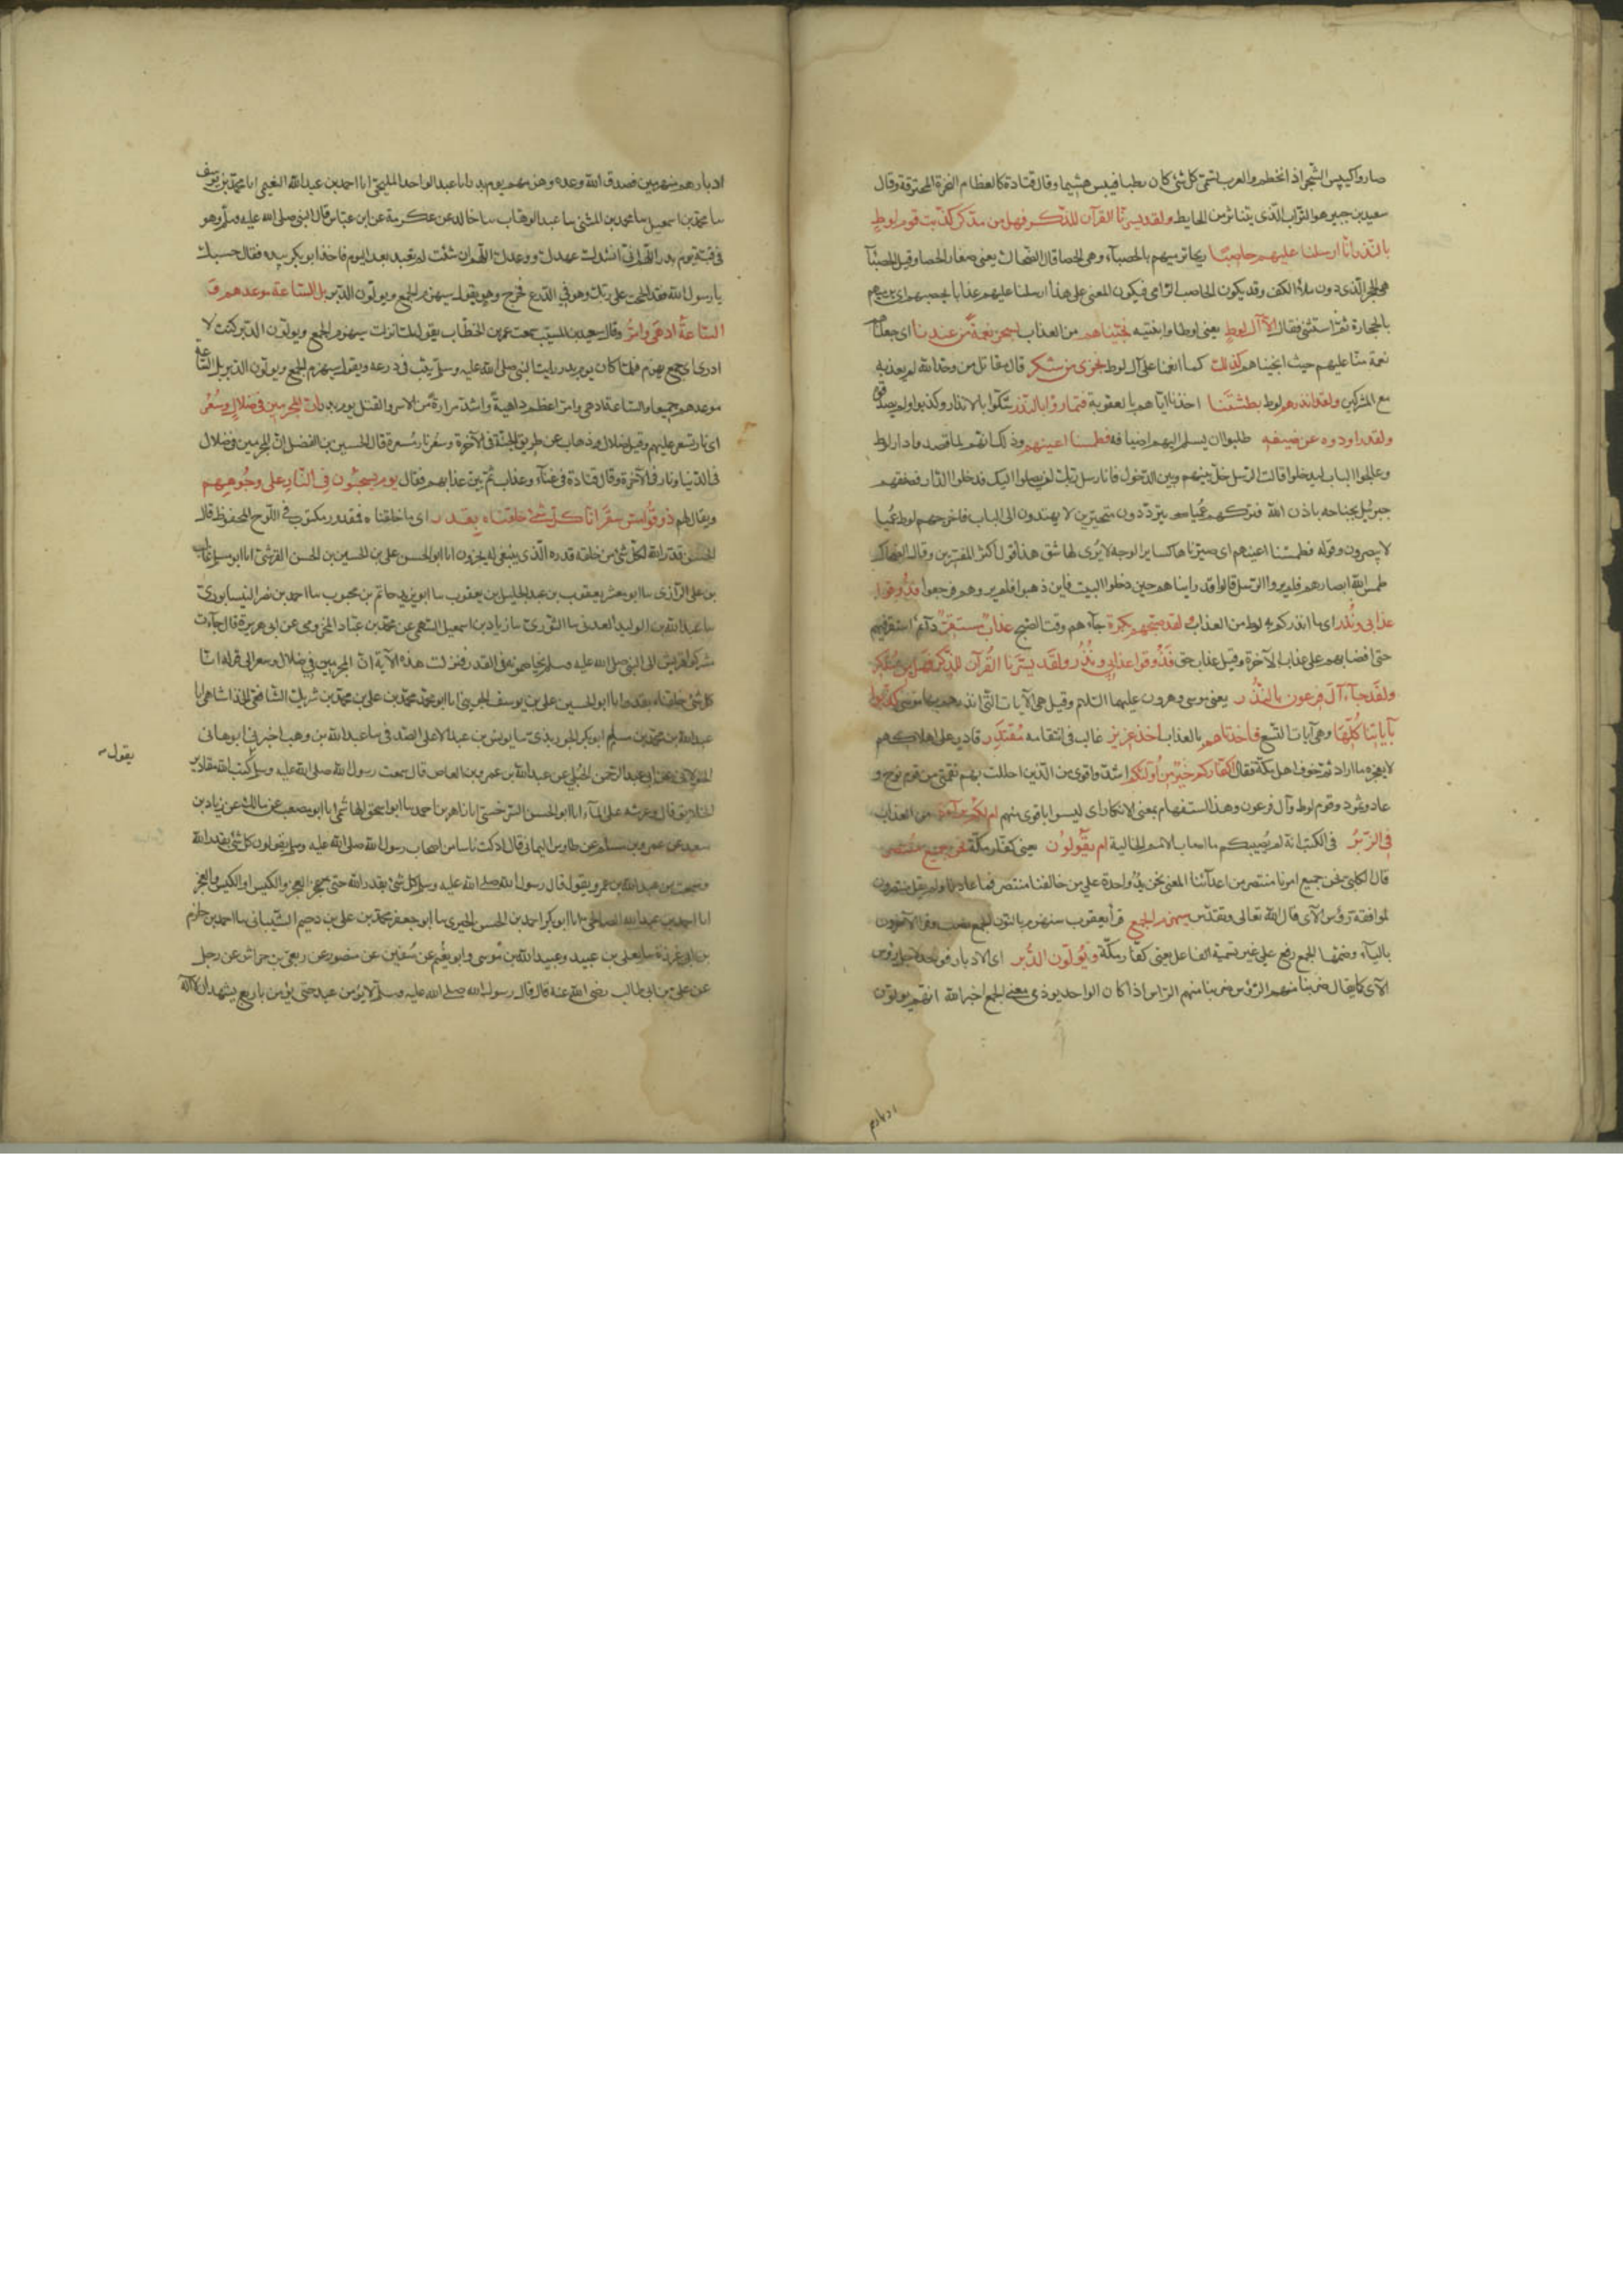 صاروا كيبس الشجر اذا انحطم والعرب تسمى كل شئ كان رطبا فيبس هشيما وقال قتادة كالعظام النخرة المحترقة وقال
سعيد بن جبير هو التراب الذى يتناثر من الحايط ولقد يسرنا القرآن للذكر فهل من مدكر كذبت قوم لوط
بالنذر انا ارسلنا عليهم حاصبا ريحا ترميهم بالحصبآء وهى الحصا قال الضحاك يعنى صغار الحصا وقيل الحصبآ
هى الحجر الذى دون ملأ الكف وقد يكون الحاصب الرامى فيكون المعنى على هذا ارسلنا عليهم عذابا يحصبهم اى يرميهم
بالحجارة ثم استثنى فقال الا آل لوط يعنى لوطا وابنتيه نجيناهم من العذاب بسحر نعمة من عندنا اى جعلناه
نعمة منا عليهم حيث انجيناهم كذلك كما انعمنا على آل لوط نجزى من شكر قال مقاتل من وحد الله لم يعذبه
مع المشركين ولقد انذرهم لوط بطشتنا اخذنا اياهم بالعقوبة فتماروا بالنذر شكوا بالانذار وكذبوا ولم يصدقوا
ولقد راودوه عن ضيفه طلبوا ان يسلم اليهم اضيافه فطمسنا اعينهم وذلك انهم لما قصدوا دار لوط
وعالجوا الباب ليدخلوا قالت الرسل خل بينهم وبين الدخول فانا رسل ربك لن يصلوا اليك فدخلوا الدار فصفقهم
جبرئيل بجناحه باذن الله فتركهم عميا يترددون متحيرين لا يهتدون الى الباب فاخرجهم لوط عميا
لا يبصرون وقوله فطمسنا اعينهم اى صيرناها كساير الوجه لا يرى لها شق هذا قول اكثر المفسرين وقال الضحاك
طمس الله ابصارهم فلم يروا الرسل قالوا قد رايناهم حين دخلوا البيت فاين ذهبوا فلم يروهم فرجعوا فذوقوا
عذابى ونذر اى ما انذركم به لوط من العذاب ولقد صبحهم بكرة جآءهم وقت الصبح عذاب مستقر دآئم استقر فيهم
حتى افضا بهم على عذاب الآخرة وقيل عذاب حق فذوقوا عذابى ونذر ولقد يسرنا القرآن للذكر فهل من مدكر
ولقد جآء آل فرعون النذر يعنى موسى وهرون عليهما السلام وقيل هى الآيات التى انذرهم بها موسى كذبوا
بآياتنا كلها وهى آيات التسع فاخذناهم بالعذاب اخذ عزيز غالب فى انتقامه مقتدر قادر على اهلاكهم
لا يعجزه ما اراد ثم خوف اهل مكة فقال اكفاركم خير من اولئكم اشد واقوى من الذين احللت بهم نقمتى من قوم نوح و
عاد وثمود وقوم لوط وآل فرعون وهذا استفهام بمعنى الانكار اى ليسوا باقوى منهم ام لكم برآءة من العذاب
فى الزبر فى الكتب انه لم يصيبكم ما اصاب الامم الخالية ام يقولون يعنى كفار مكة نحن جميع منتصر
قال الكلبى نحن جميع امرنا منتصر من اعدآئنا المعنى نحن يد واحدة على من خالفنا منتصر فمن عادانا ولم يقل منتصرون
لموافقة رؤس الآى قال الله تعالى وتقدس سيهزم الجمع قرأ يعقوب سنهزم بالنون الجمع نصب وقرأ الآخرون
باليآء وضمها الجمع رفع على غير تسمية الفاعل يعنى كفار مكة ويولون الدبر اى الادبار فوحد لاجل رؤس
الآى كما يقال ضربنا منهم الرؤس ضربنا منهم الراس اذا كان الواحد يوذى معنى الجمع اخبر الله انهم يولون
ادبارهم
ادبارهم منهزمين فصدق الله وعده وهزمهم يوم بدر انا عبد الواحد المليحى انا احمد بن عبد الله النعيمى انا محمد بن يوسف
سا محمد بن اسمعيل سا محمد بن المثنى سا عبد الوهاب سا خالد عن عكرمة عن ابن عباس قال النبى صلى الله عليه وسلم وهو
فى قبة يوم بدر اللهم انى انشدك عهدك ووعدك اللهم ان شئت لم تعبد بعد اليوم فاخذ ابو بكر بيده فقال حسبك
يا رسول الله فقد الححت على ربك وهو فى الدرع فخرج وهو يقول سيهزم الجمع ويولون الدبر بل الساعة موعدهم و
الساعة ادهى وامر وقال سعيد بن المسيب سمعت عمر بن الخطاب يقول لما نزلت سيهزم الجمع ويولون الدبر كنت لا
ادرى اى جمع يهزم فلما كان يوم بدر رايت النبى صلى الله عليه وسلم يثب فى درعه ويقول سيهزم الجمع ويولون الدبر بل الساعة
موعدهم جميعا والساعة ادهى وامر اعظم داهية واشد مرارة من الاسر والقتل يوم بدر ان المجرمين فى ضلال وسعر
اى نار تسعر عليهم وقيل ضلال ذهاب عن طريق الجنة فى الآخرة وسعر نار مسعرة قال الحسين بن الفضل ان المجرمين فى ضلال
فى الدنيا ونار فى الآخرة وقال قتادة فى عنآء وعذاب ثم بين عذابهم فقال يوم يسحبون فى النار على وجوههم
ويقال لهم ذوقوا مس سقر انا كل شئ خلقناه بقدر اى ما خلقناه فمقدور مكتوب فى اللوح المحفوظ قال
الحسن قدر الله لكل شئ من خلقه قدره الذى ينبغى له انا ابو الحسن على بن الحسين بن الحسن القرشى انا ابو مسلم غالب
بن على الرازى سا ابو معشر يعقوب بن عبد الجليل بن يعقوب سا ابو يزيد حاتم بن محبوب سا احمد بن نصر النيسابورى
سا عبد الله بن الوليد العدنى سا الثورى سا زياد بن اسمعيل السهمى عن محمد بن عباد المخزومى عن ابى هريرة قال جآءت
مشركوا قريش الى النبى صلى الله عليه وسلم يخاصمونه فى القدر فنزلت هذه الآية ان المجرمين فى ضلال وسعر الى قوله انا
كل شئ خلقناه بقدر انا ابو الحسين على بن يوسف الجوينى انا ابو محمد محمد بن على بن محمد بن شريك الشافعى الخذاشاهى انا
عبد الله بن محمد بن مسلم ابو بكر الجوربذى سا يونس بن عبد الاعلى الصدفى سا عبد الله بن وهب اخبرنى ابو هانى
الخولانى عن ابى عبد الرحمن الحبلى عن عبد الله بن عمرو بن العاص قال سمعت رسول الله صلى الله عليه وسلم كتب الله مقادير
يقول
الخلايق قال وعرشه على المآء انا ابو الحسن السرخسى انا زاهر بن احمد سا ابو اسحق الهاشمى انا ابو مصعب عن مالك عن زياد بن
سعد عن عمرو بن مسلم عن طاوس اليمانى قال ادركت ناسا من اصحاب رسول الله صلى الله عليه وسلم يقولون كل شئ بقدر الله
وسمعت من عبد الله بن عمر ويقول قال رسول الله صلى الله عليه وسلم كل شئ بقدر الله حتى العجز والكيس او الكيس والعجز
انا احمد بن عبد الله الصالحى انا ابو بكر احمد بن الحسن الحيرى سا ابو جعفر محمد بن على بن دحيم الشيبانى سا احمد بن حازم
بن ابى غرزة سا يعلى بن عبيد وعبيد الله بن موسى وابو نعيم عن سفين عن منصور عن ربعى بن حراش عن رجل
عن على بن ابى طالب رضى الله عنه قال قال رسول الله صلى الله عليه وسلم لا يؤمن عبد حتى يؤمن باربع يشهد ان لا اله